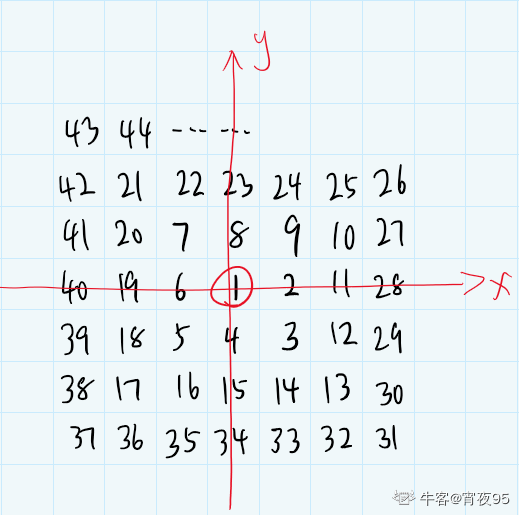 y
43 44 --- ---
42 21 22 23 24 25 26
41 20 7 8 9 10 27
40 19 6 1 2 11 28 x
39 18 5 4 3 12 29
38 17 16 15 14 13 30
37 36 35 34 33 32 31
牛客@宵夜95